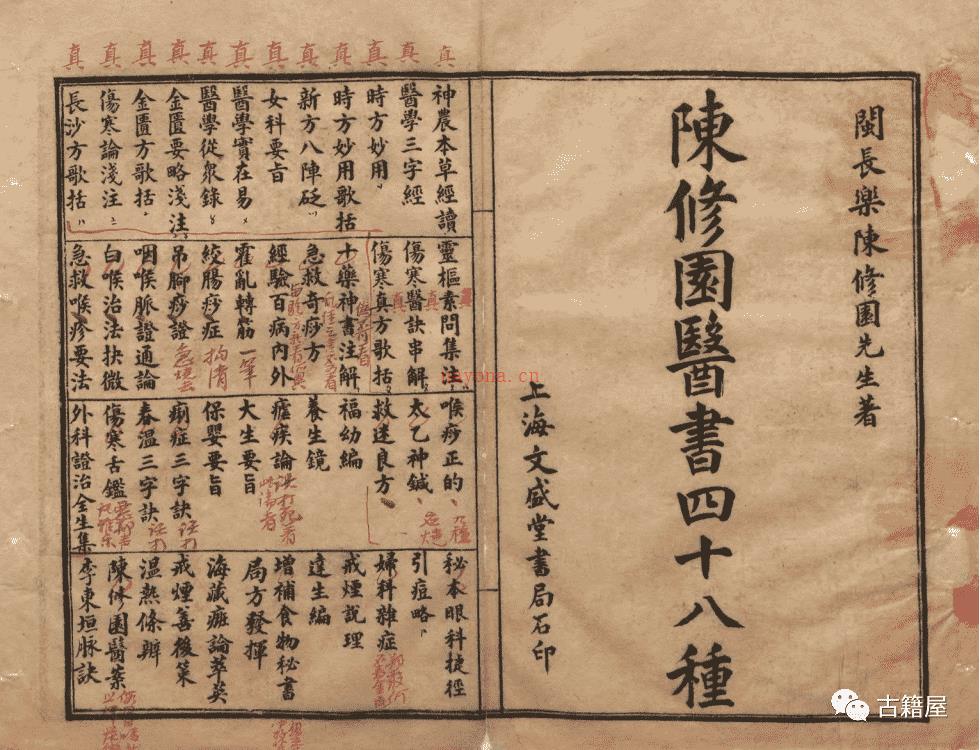 閩長樂陳修園先生著
陳修園醫書四十八種
上海文盛堂書局石印
真 真 真 真 真 真 真 真 真 真 真 真
神農本草經讀
醫學三字經
時方妙用
時方妙用歌括
新方八陣砭
女科要旨
醫學實在易
醫學從眾錄
金匱要略淺注
金匱方歌括
傷寒論淺注
長沙方歌括
靈樞素問集注
傷寒醫訣串解
傷寒真方歌括
十藥神書注解
急救奇痧方
經驗百病內外
霍亂轉筋
絞腸痧症
吊腳痧證
咽喉脈證通論
白喉治法抉微
急救喉疹要法
喉痧正的
太乙神鍼
救迷良方
福幼編
養生鏡
瘧疾論
大生要旨
保嬰要旨
痢症三字訣
春溫三字訣
傷寒舌鑑
外科證治全生集
秘本眼科捷徑
引痘略
婦科雜症
戒煙說理
達生編
增補食物秘書
局方發揮
海藏癍論萃英
戒煙善後策
溫熱條辨
陳修園醫案
李東垣脉訣
nayona.cn
古籍屋